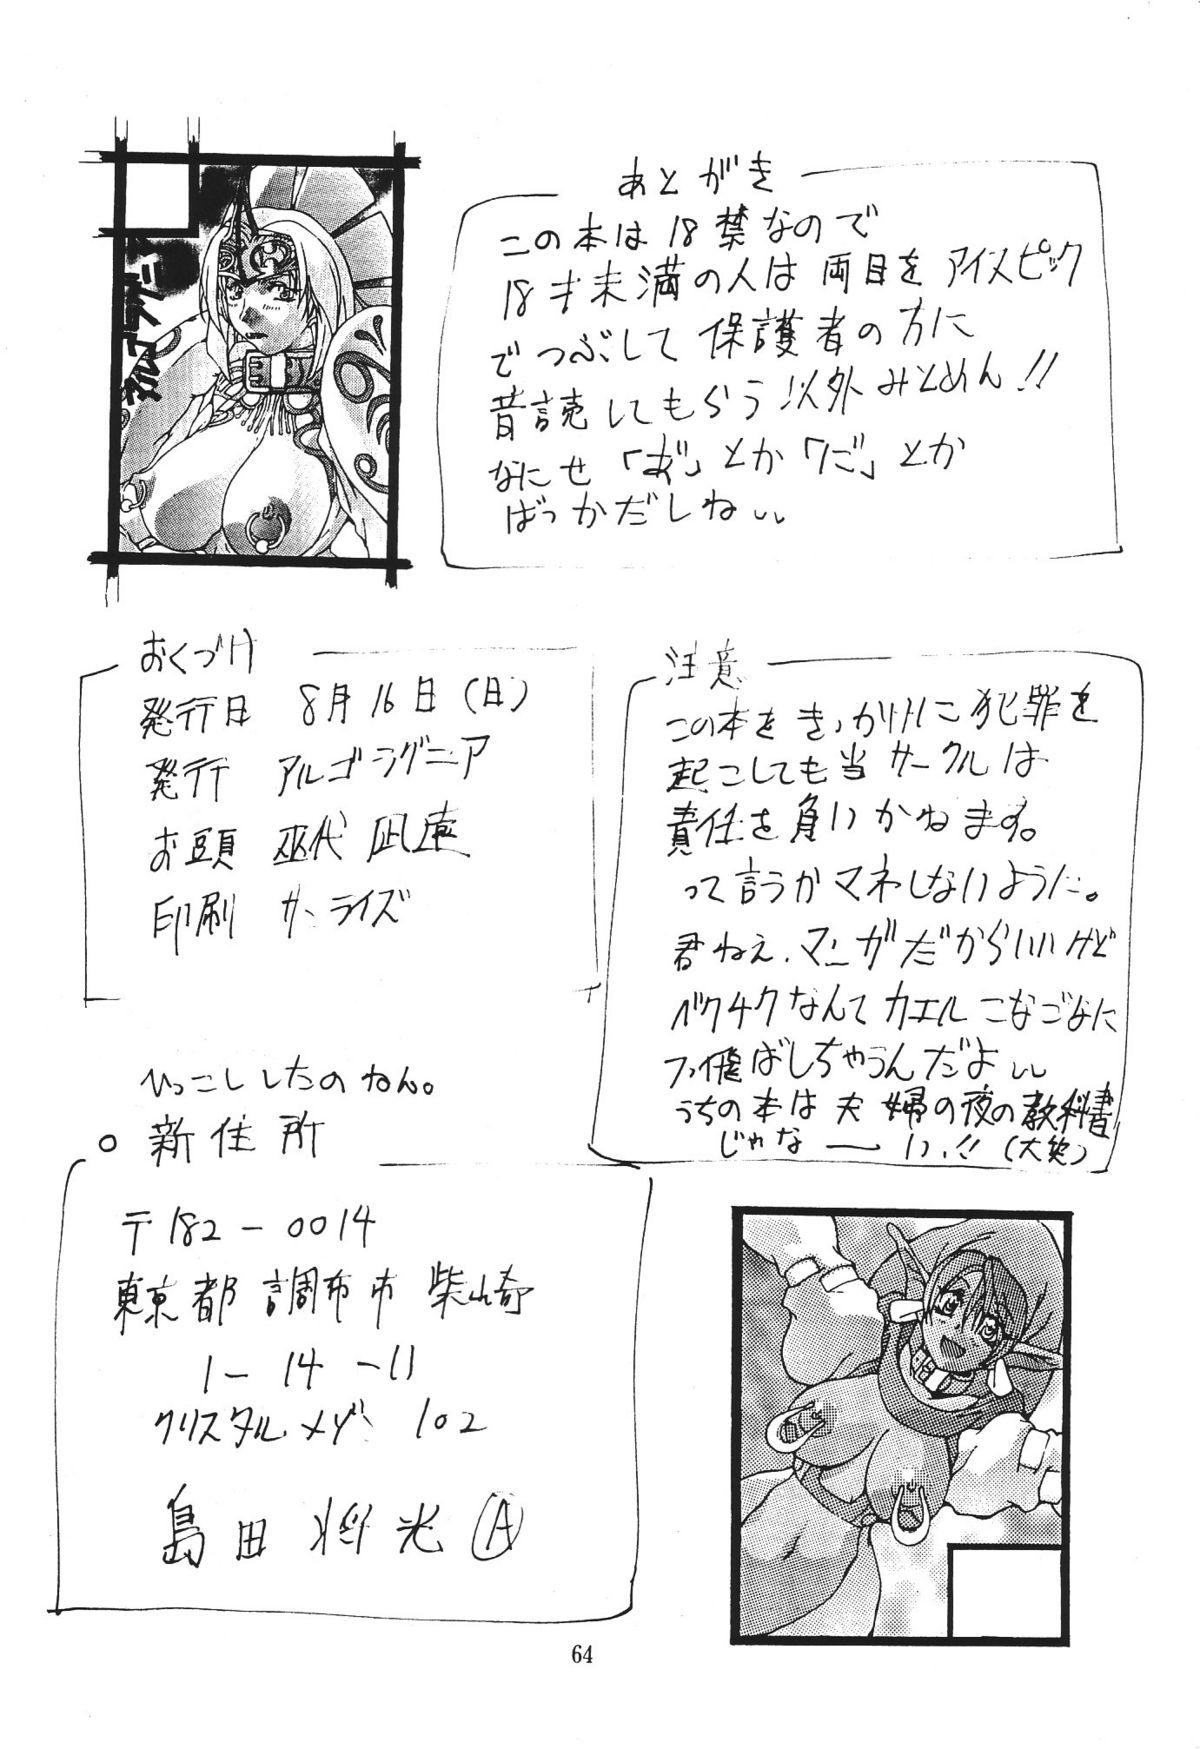 あとがき
この本は18禁なので
18才未満の人は両目をアイスピック
でつぶして保護者の方に
音読してもらう以外みとめん!!
なにせ「あ゛」とか「ご」とか
ばっかだしねぃぃ
おくづけ
発行日 8月16日(日)
発行 アルゴラグニア
お頭 巫代凪遠
印刷 サンライズ
注意
この本をきっかけに犯罪を
起こしても当サークルは
責任を負いかねます。
って言うかマネしないように。
君ねぇ、マンガだからいいけど
ベクチクなんてカエルこなごなに
フッ飛ばしちゃうんだよぃぃ
うちの本は夫婦の夜の教科書
じゃなーい!!(大笑)
ひっこししたのねん。
○新住所
〒182-0014
東京都調布市柴崎
1-14-11
クリスタルメゾン102
島田将光Ⓐ
64